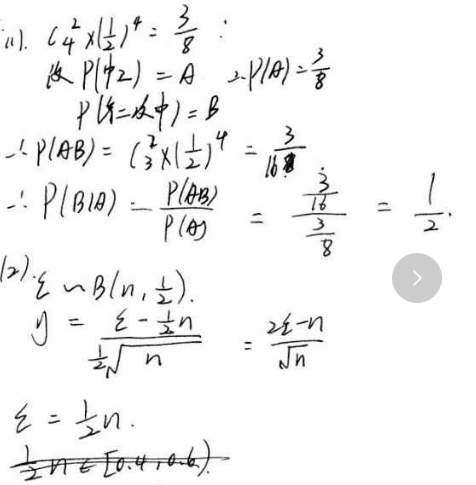 (1). C₄² × (1/2)⁴ = 3/8 :
设 P(中2) = A ∴ P(A) = 3/8
P(第二次中) = B
∴ P(AB) = C₃² × (1/2)⁴ = 3/16
∴ P(B|A) = P(AB)/P(A) = (3/16)/(3/8) = 1/2.
(2). ξ ~ B(n, 1/2).
y = (ξ - 1/2 n)/(1/2 √n) = (2ξ - n)/√n
ξ = 1/2 n.
1/2 n ∈ [0.4, 0.6).